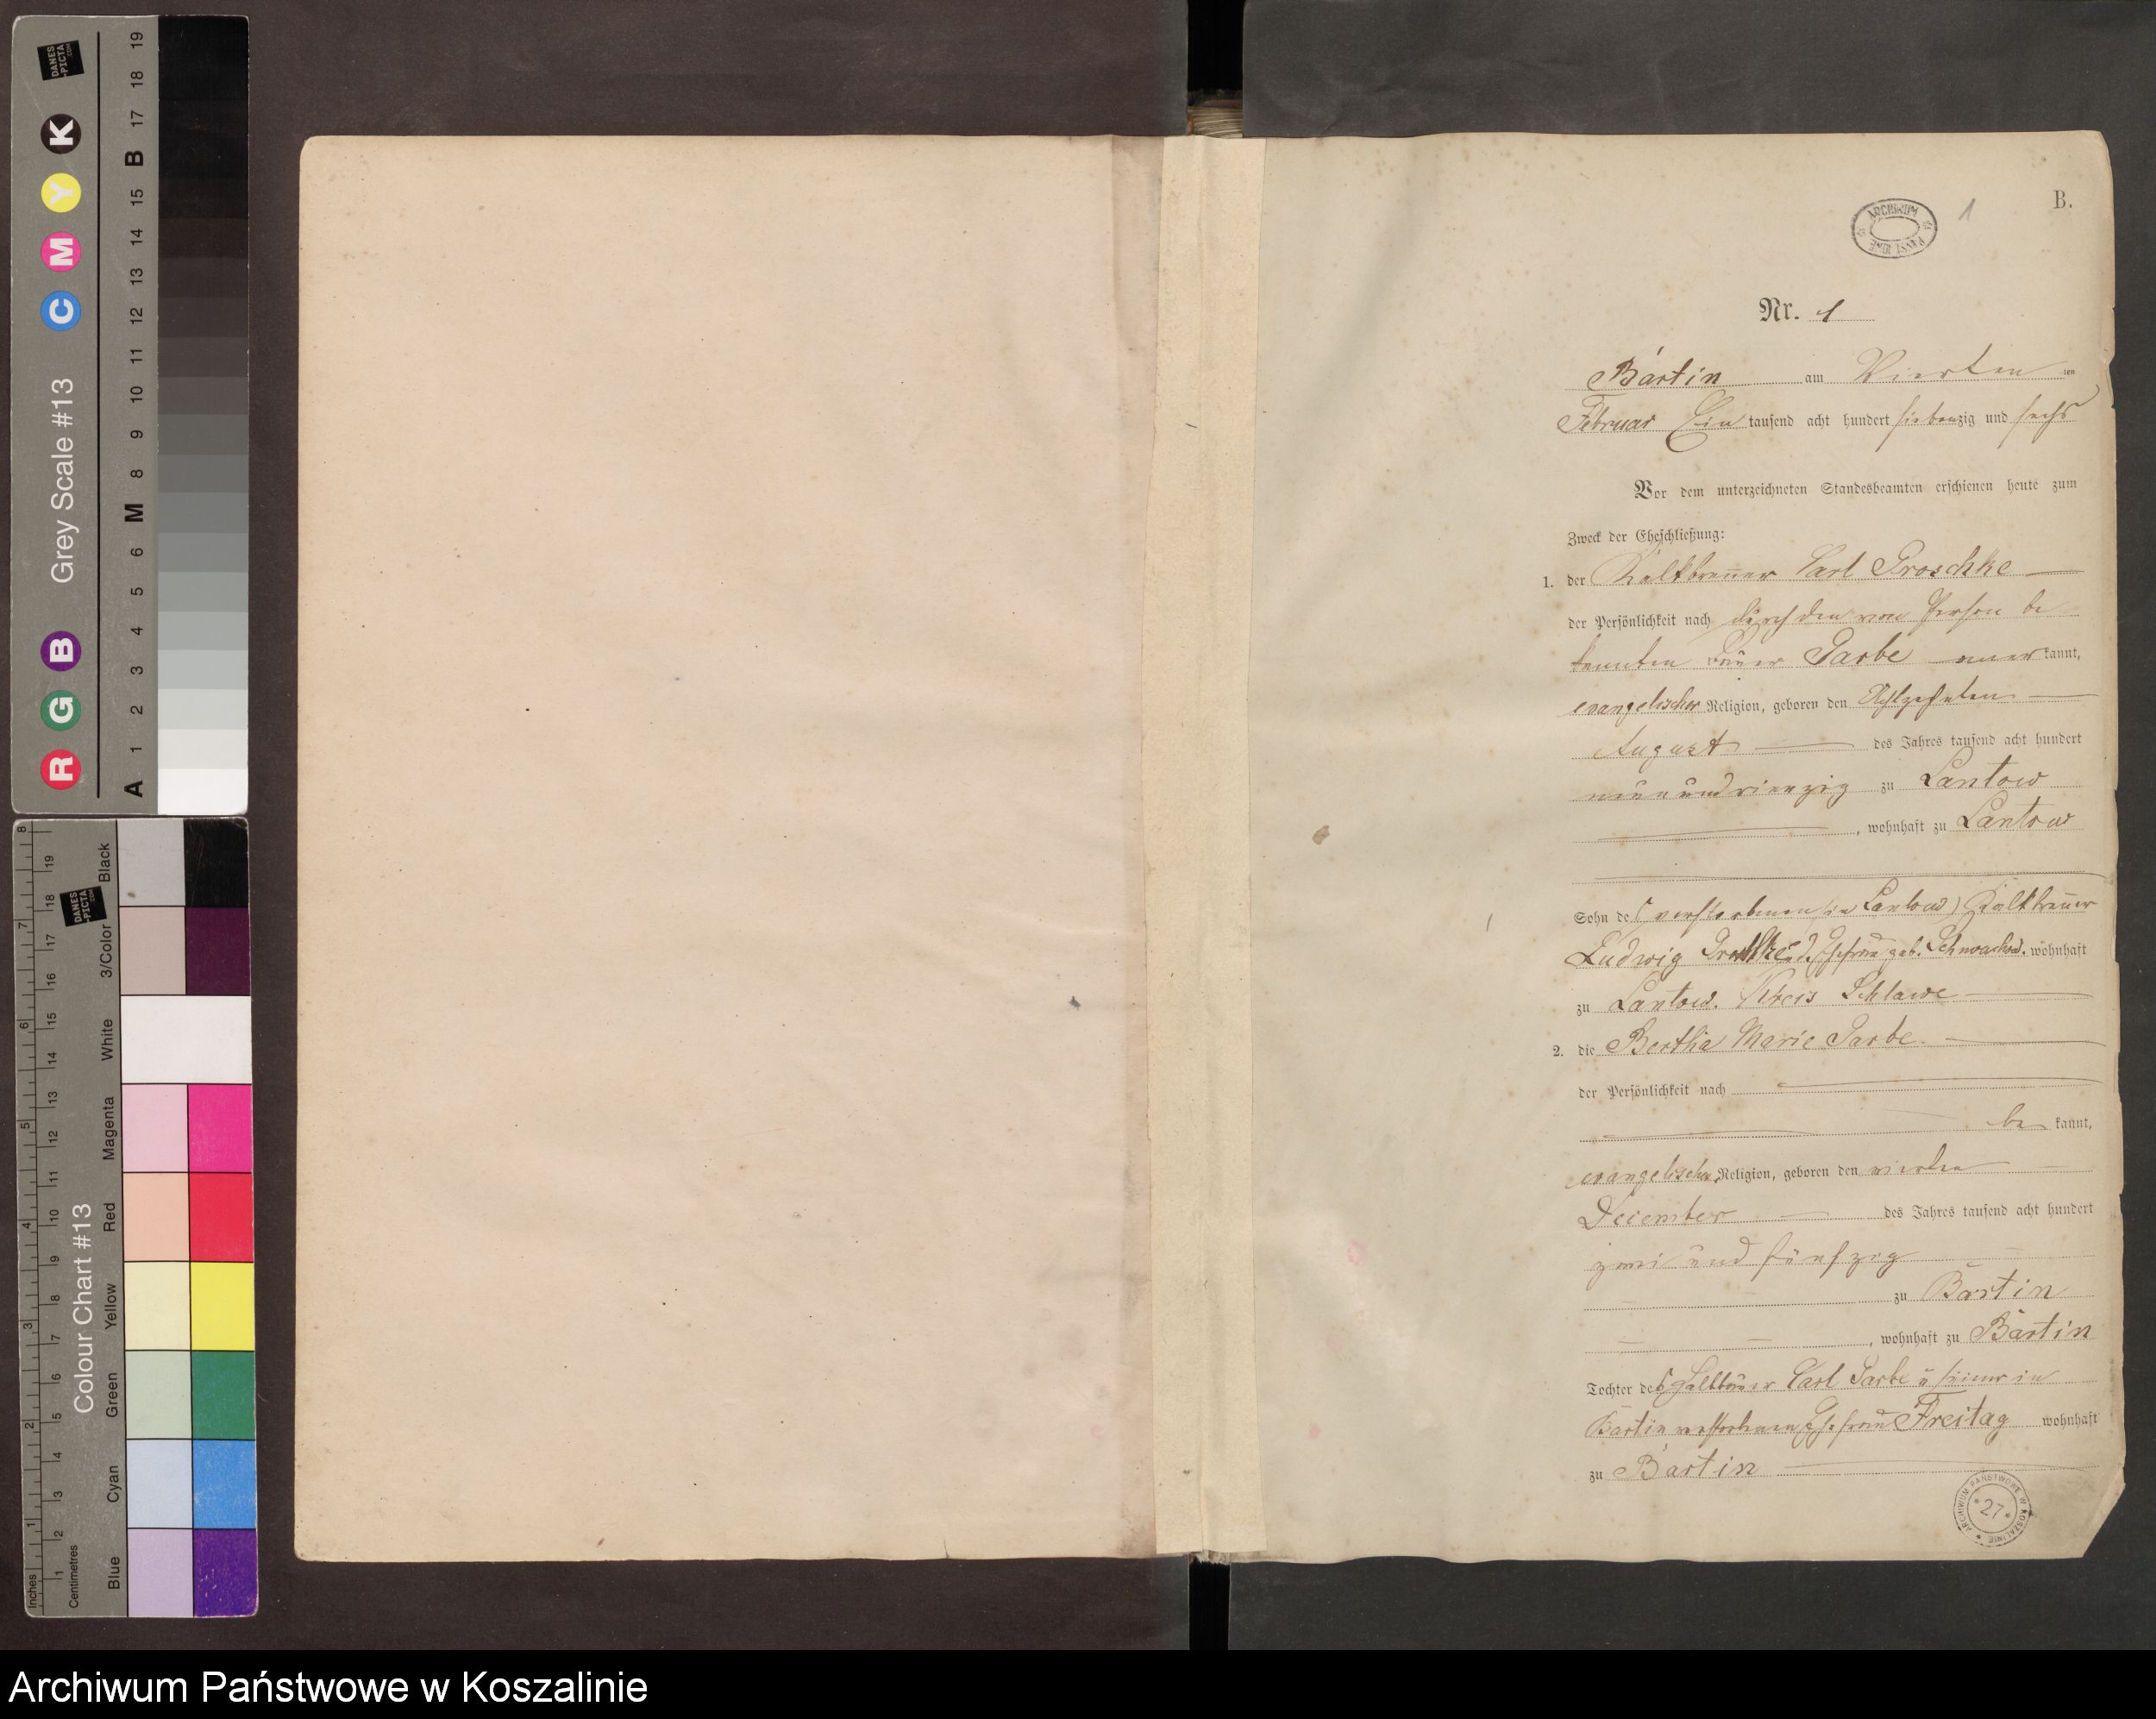 B.
1
ARCHIWUM
Nr. 1
Bartin am Vierten ten
Februar Ein tausend acht hundert siebenzig und sechs
Vor dem unterzeichneten Standesbeamten erschienen heute zum
Zweck der Eheschließung:
1. der Carl Groschke
der Persönlichkeit nach durch den von Person be
kannten Bauer Parbe aner kannt,
evangelischer Religion, geboren den Achtzehnten
August des Jahres tausend acht hundert
neun und vierzig zu Lantow
, wohnhaft zu Lantow
Sohn des (verstorbenen in Lantow)
Ludwig Ehefrau geb. wohnhaft
zu Lantow. Kreis Schlawe
2. die Bertha Marie Parbe.
der Persönlichkeit nach
be kannt,
evangelischer Religion, geboren den vierten
December des Jahres tausend acht hundert
zwei und fünfzig
zu Bartin
, wohnhaft zu Bartin
Tochter des Carl Parbe u seiner in
Bartin verstorbenen Ehefrau Freitag wohnhaft
zu Bartin
ARCHIWUM PAŃSTWOWE W KOSZALINIE
*27*
Grey Scale #13
R G B C M Y K
A 1 2 3 4 5 6 M 8 9 10 11 12 13 14 15 B 17 18 19
DANES-PICTA.COM
Colour Chart #13
Blue Cyan Green Yellow Red Magenta White 3/Color Black
Inches 1 2 3 4 5 6 7 8
Centimetres 1 2 3 4 5 6 7 8 9 10 11 12 13 14 15 16 17 18 19
DANES-PICTA.COM
Archiwum Państwowe w Koszalinie